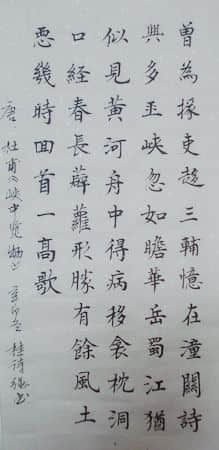 曾為掾吏趨三輔憶在潼關詩
興多巫峽忽如瞻華岳蜀江猶
似見黃河舟中得病移衾枕洞
口經春長薜蘿形勝有餘風土
惡幾時回首一高歌
唐·杜甫《峽中覽物》辛卯 桂詩书